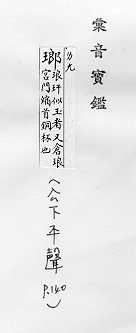 彙音寶鑑
力九
瑯
琅玕似玉者又倉琅
宮門嫡首銅杯也
（公下平聲
P.140）